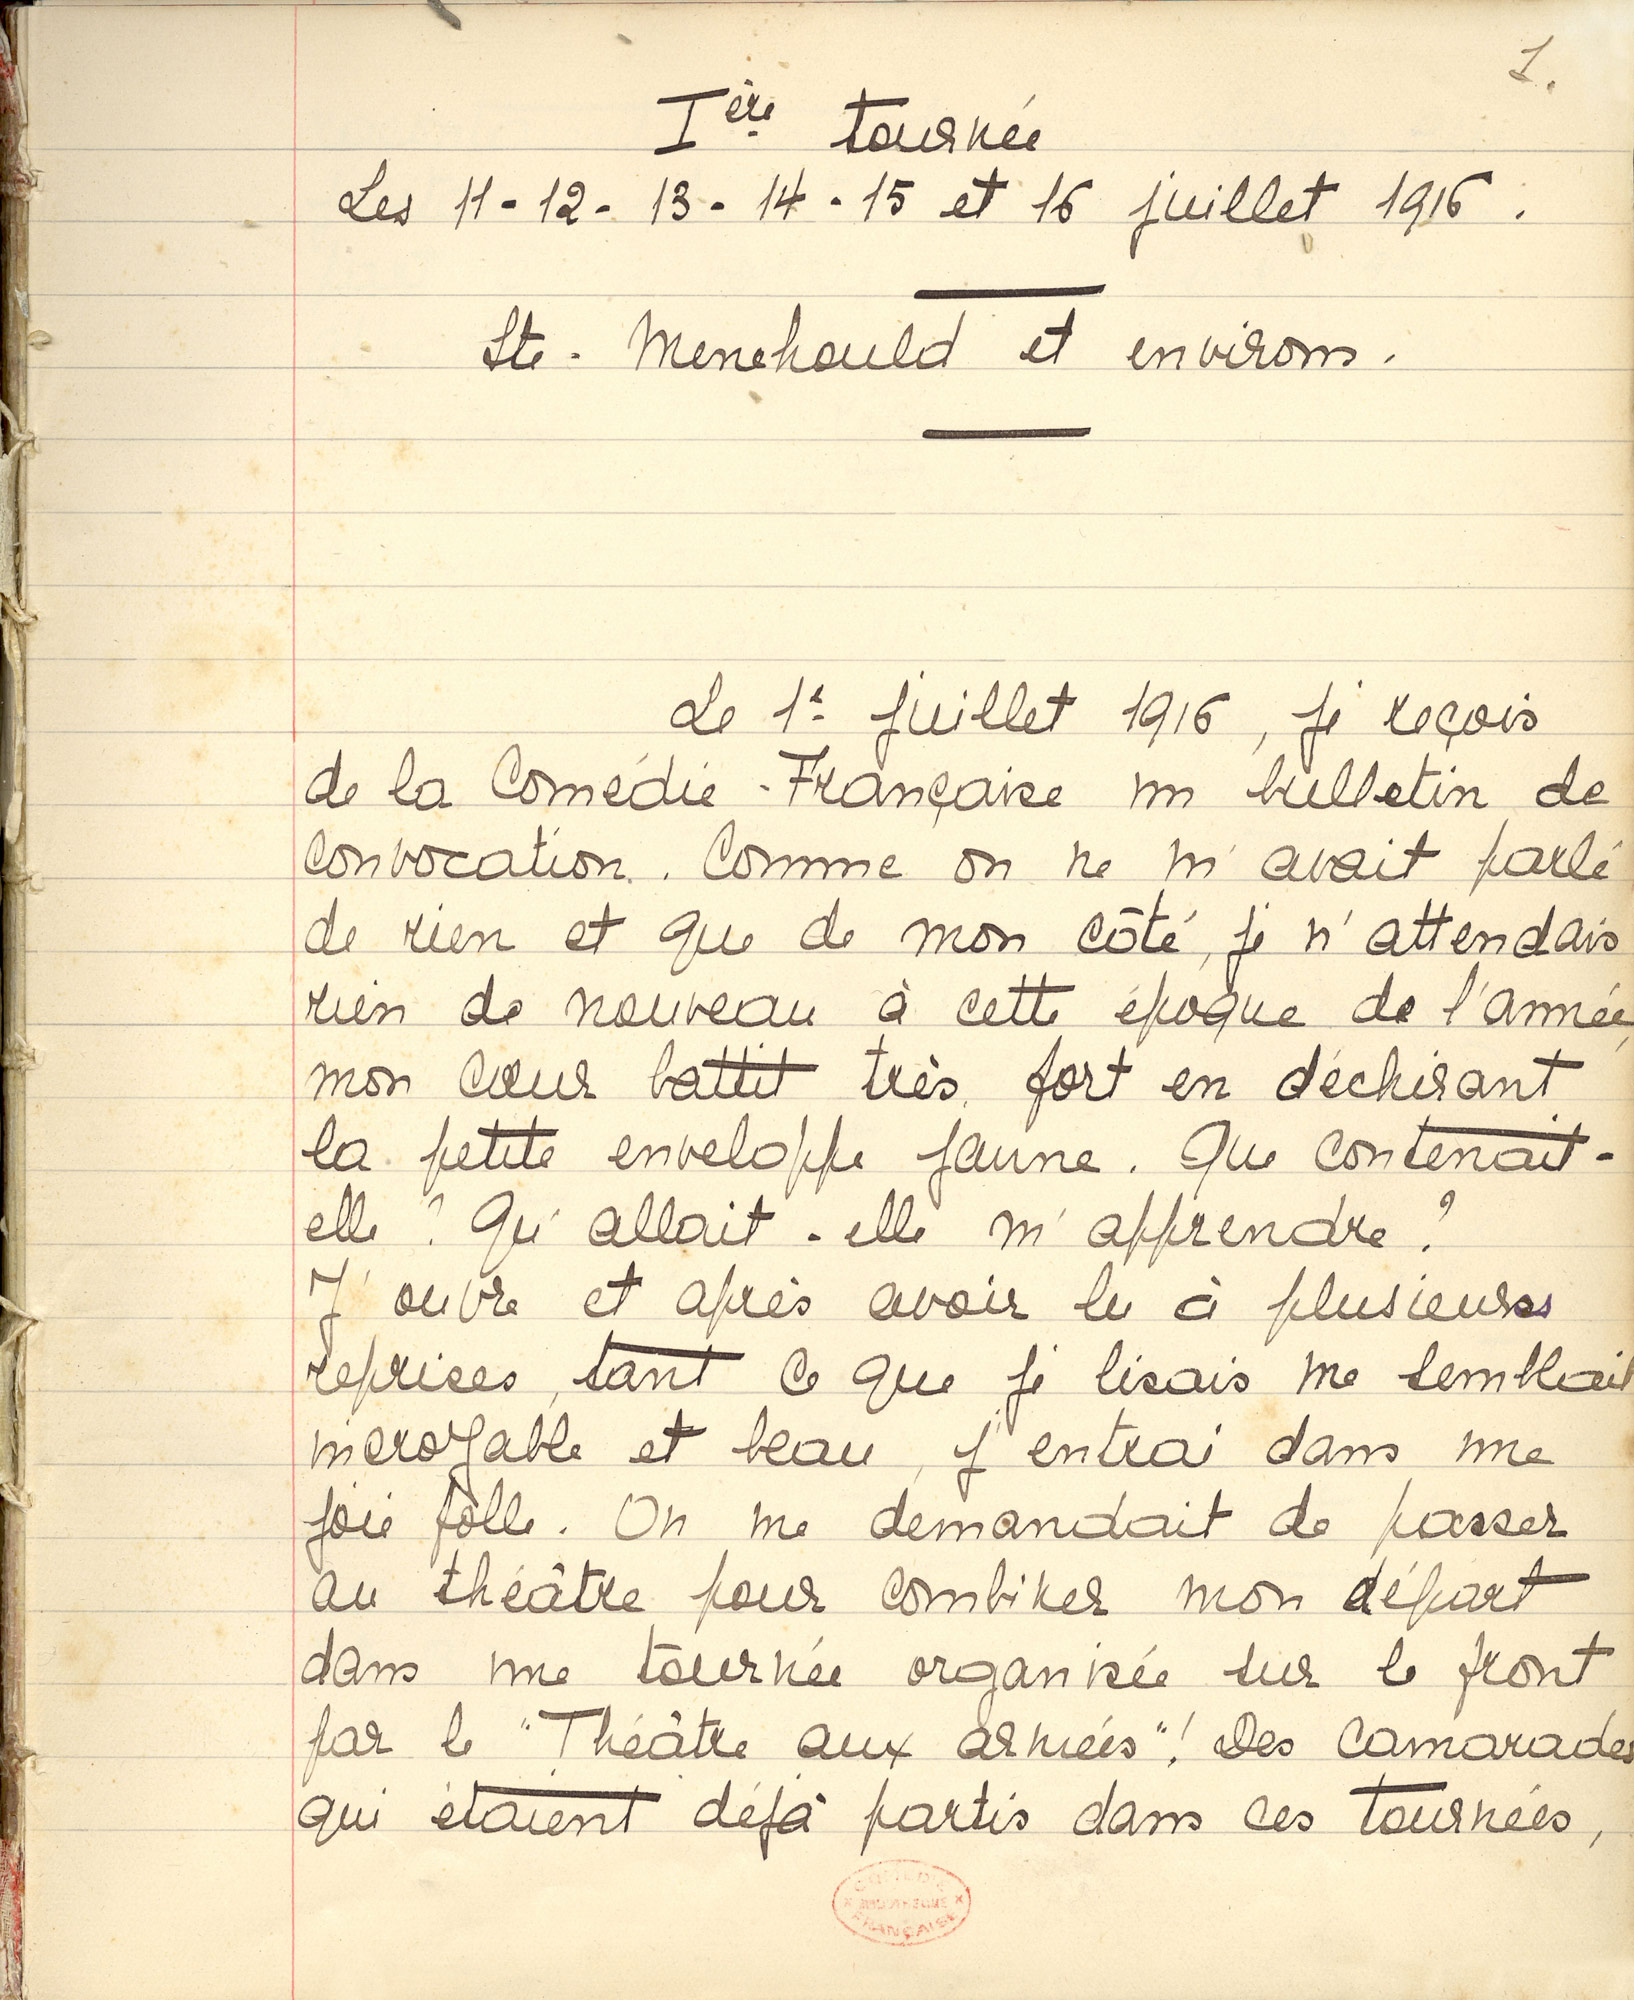 1.
Ière tournée
Les 11-12-13-14-15 et 16 juillet 1916.
Ste-Menehould et environs.
Le 1er juillet 1916, je reçois
de la Comédie-Française un bulletin de
convocation. Comme on ne m'avait parlé
de rien et que de mon côté, je n'attendais
rien de nouveau à cette époque de l'année,
mon cœur battit très fort en déchirant
la petite enveloppe jaune. Que contenait-
elle ? Qu'allait-elle m'apprendre ?
J'ouvre et après avoir lu à plusieurs
reprises, tant ce que je lisais me semblait
incroyable et beau, j'entrai dans une
joie folle. On me demandait de passer
au théâtre pour combiner mon départ
dans une tournée organisée sur le front
par le "Théâtre aux armées"! Des camarades
qui étaient déjà partis dans ces tournées,
COMÉDIE
BIBLIOTHÈQUE
FRANÇAISE